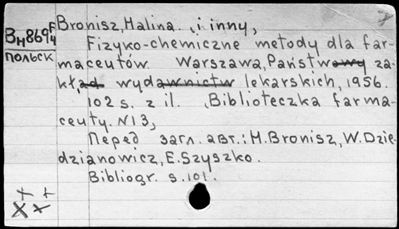 Bн869F4 Bronisz, Halina. i inny,
польск Fizyko-chemiczne metody dla far-
maceutów. Warszawa, Państwowy za-
kład wydawnictw lekarskich, 1956.
102 s. z il. (Biblioteczka farma-
ceuty. N13)
Перед загл. авт.: H. Bronisz, W. Dzie-
dzianowicz, E. Szyszko.
Bibliogr. s. 101.